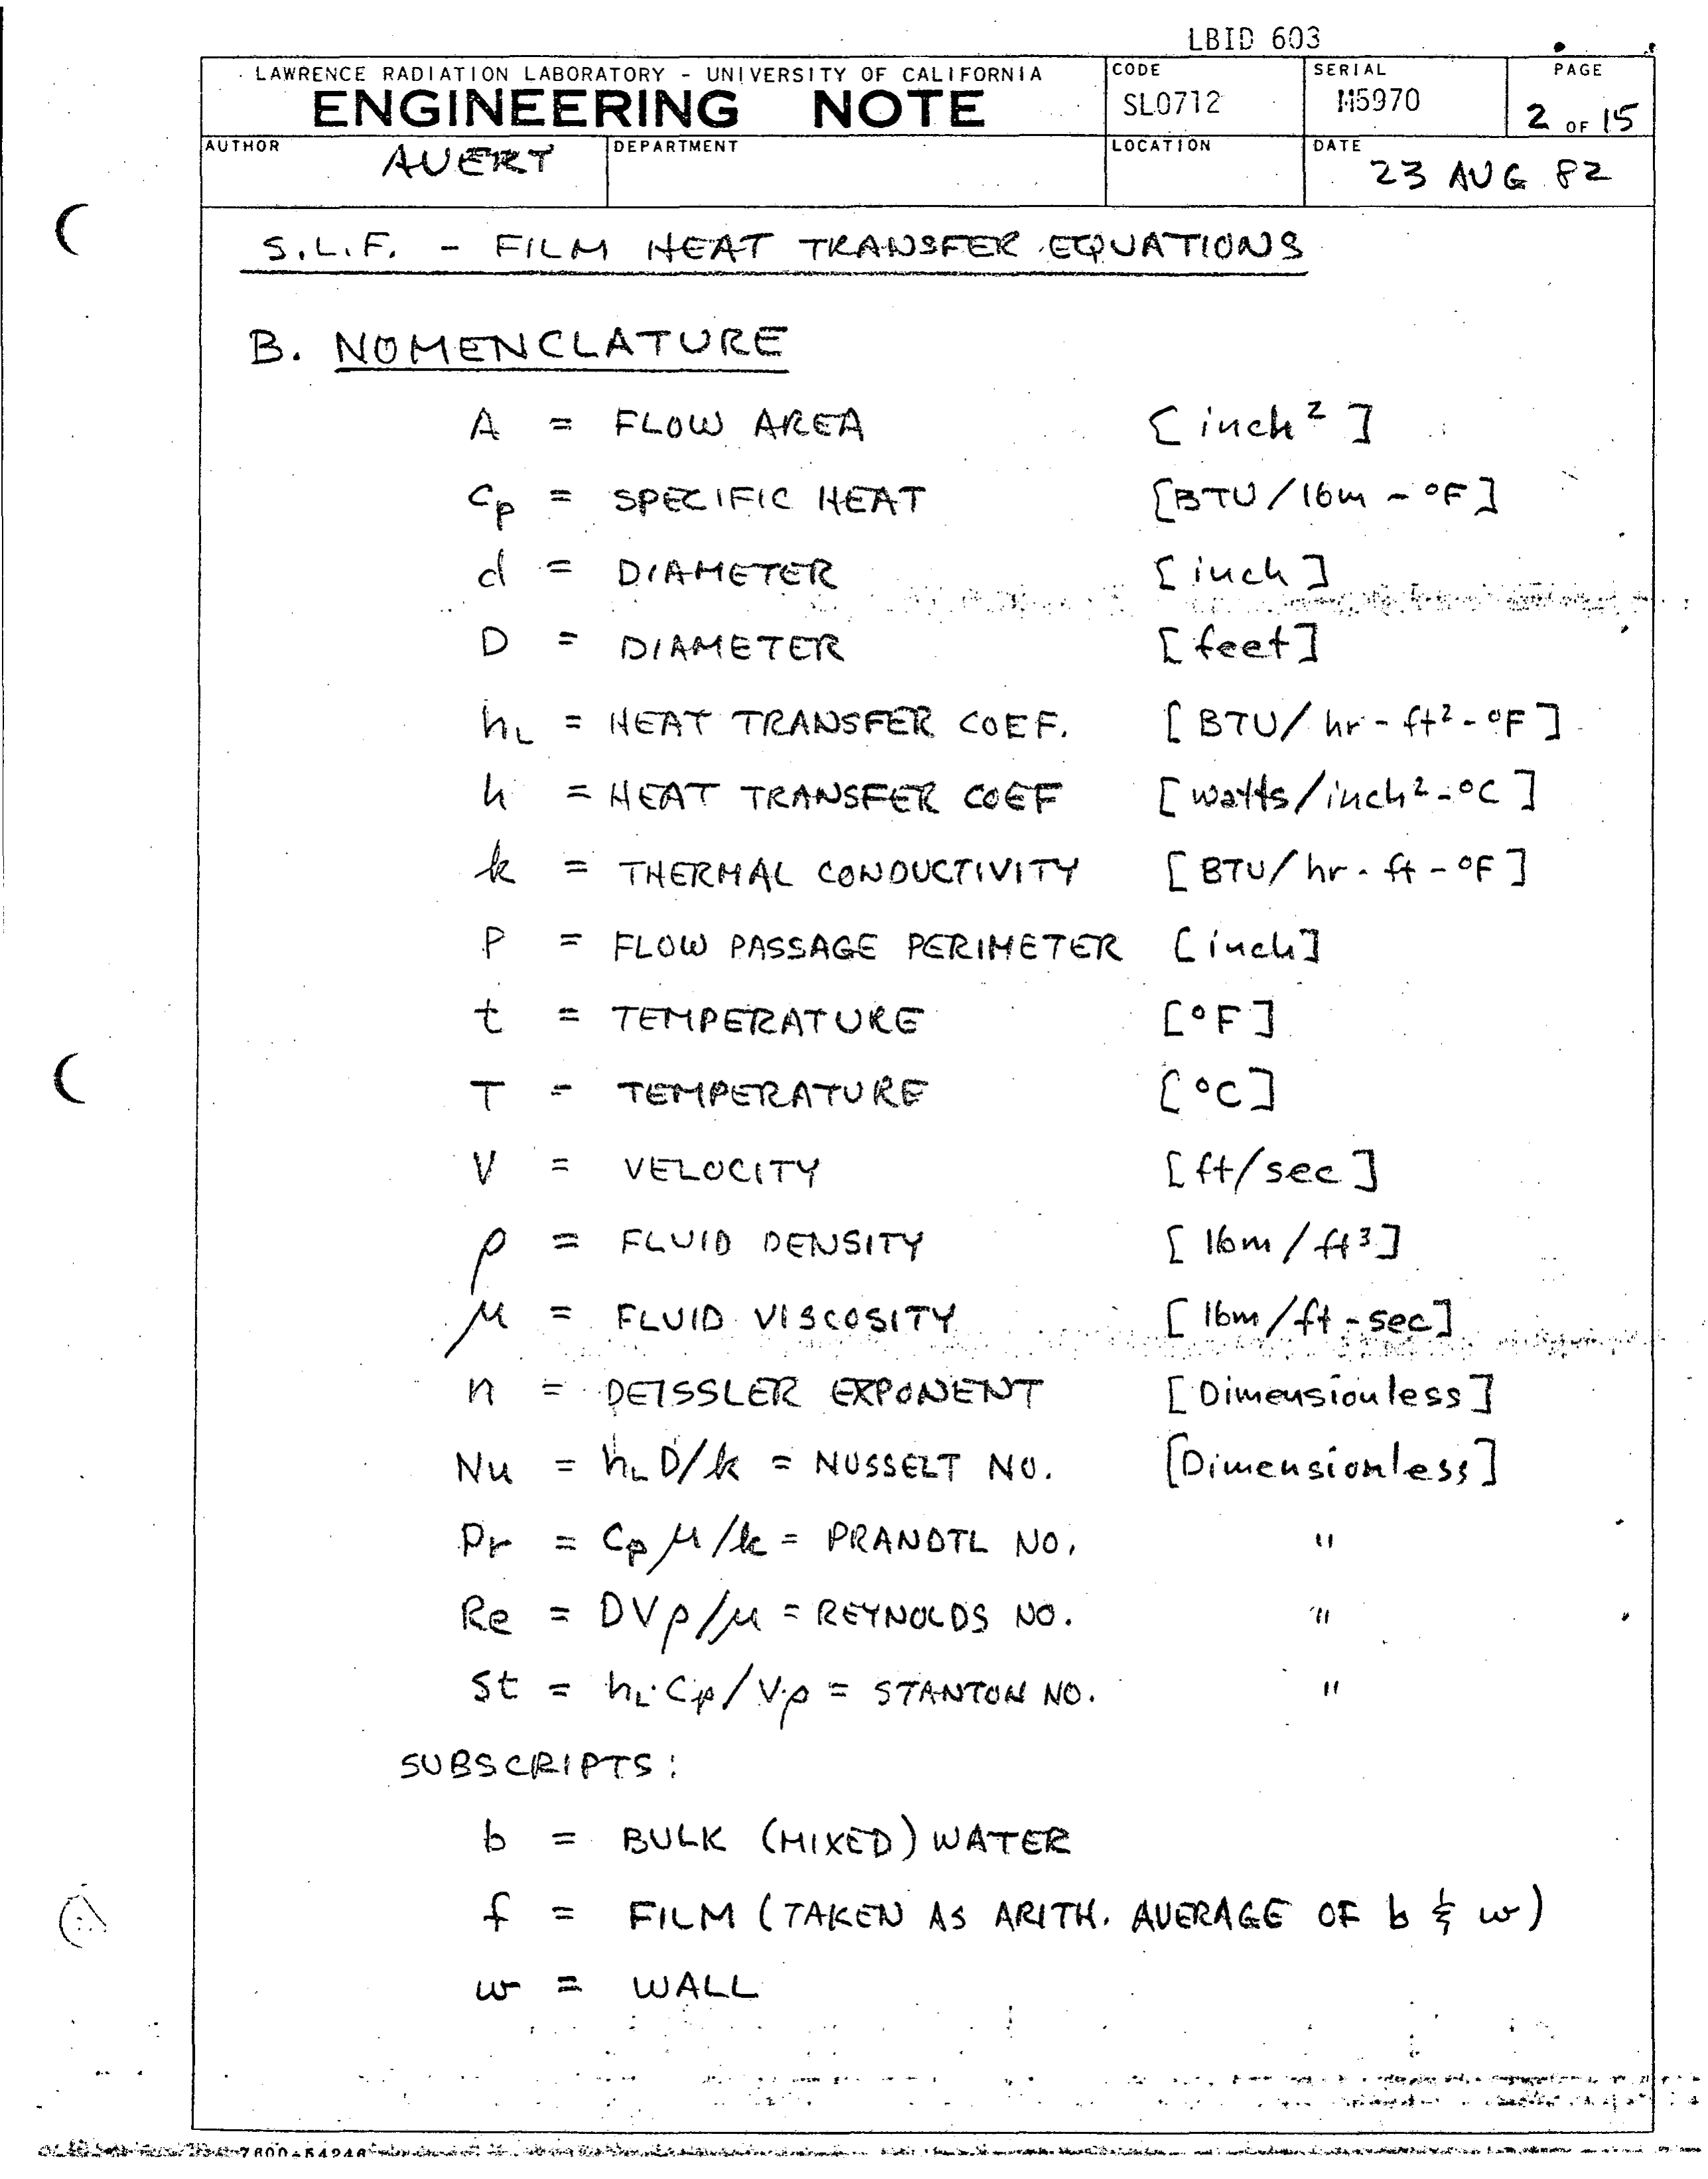 LBID 603
LAWRENCE RADIATION LABORATORY - UNIVERSITY OF CALIFORNIA
ENGINEERING NOTE
CODE
SL0712
SERIAL
M5970
PAGE
2 OF 15
AUTHOR
AVERY
DEPARTMENT
LOCATION
DATE
23 AUG 82
S.L.F. - FILM HEAT TRANSFER EQUATIONS
B. NOMENCLATURE
A = FLOW AREA [inch²]
Cp = SPECIFIC HEAT [BTU/lbm - °F]
d = DIAMETER [inch]
D = DIAMETER [feet]
hL = HEAT TRANSFER COEF. [BTU/hr-ft²-°F]
h = HEAT TRANSFER COEF [watts/inch²-°C]
k = THERMAL CONDUCTIVITY [BTU/hr-ft-°F]
P = FLOW PASSAGE PERIMETER [inch]
t = TEMPERATURE [°F]
T = TEMPERATURE [°C]
V = VELOCITY [ft/sec]
ρ = FLUID DENSITY [lbm/ft³]
μ = FLUID VISCOSITY [lbm/ft-sec]
n = DEISSLER EXPONENT [Dimensionless]
Nu = hL D/k = NUSSELT NO. [Dimensionless]
Pr = Cp μ/k = PRANDTL NO. "
Re = DVρ/μ = REYNOLDS NO. "
St = hL·Cp/Vρ = STANTON NO. "
SUBSCRIPTS:
b = BULK (MIXED) WATER
f = FILM (TAKEN AS ARITH. AVERAGE OF b & w)
w = WALL